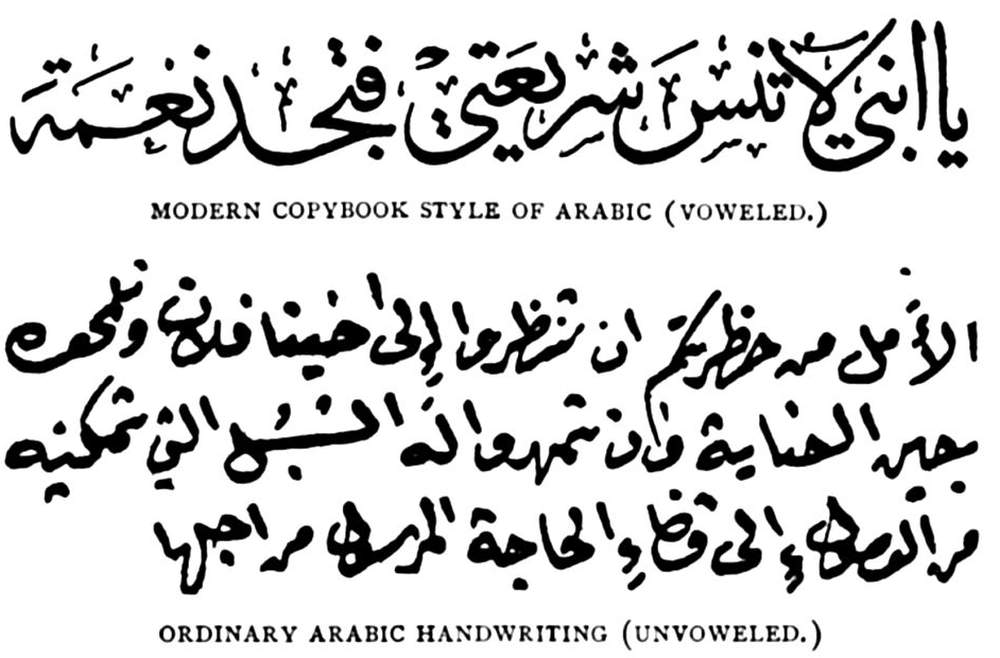 يا ابني لا تنس شريعتي فتجد نعمة
MODERN COPYBOOK STYLE OF ARABIC (VOWELED.)
الأمل من حظرتكم ان تنظروا إلى اخينا فلان
بعين العناية وان تمهدوا له السبل التي تمكنه
من الوصول إلى قضاء الحاجة المرسل من اجلها
ORDINARY ARABIC HANDWRITING (UNVOWELED.)